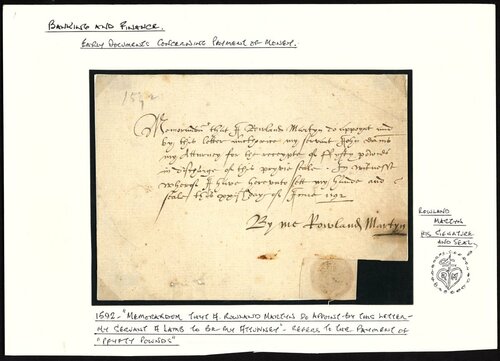 BANKING AND FINANCE.
EARLY DOCUMENTS CONCERNING PAYMENT OF MONEY.
1592
Memorandum that I Rowland Martyn do appoynt and
by this letter authorise my servant
my Attorney for the receypte of fyfty pownds
in discharge of this pryvie seale. In witness
whereof I have herevnto sett my hande and
seale this day of June 1592
By me Rowland Martyn
ROWLAND
MARTYN
HIS SIGNATURE
AND SEAL.
R M
1592 - "MEMORANDEM THAT I ROWLAND MARTYN DO APPOINT BY THIS LETTER -
MY SERVANT A LAMB TO BE MY ATTURNEY" - REFERS TO THE PAYMENT OF
"FFYFTY POUNDS"